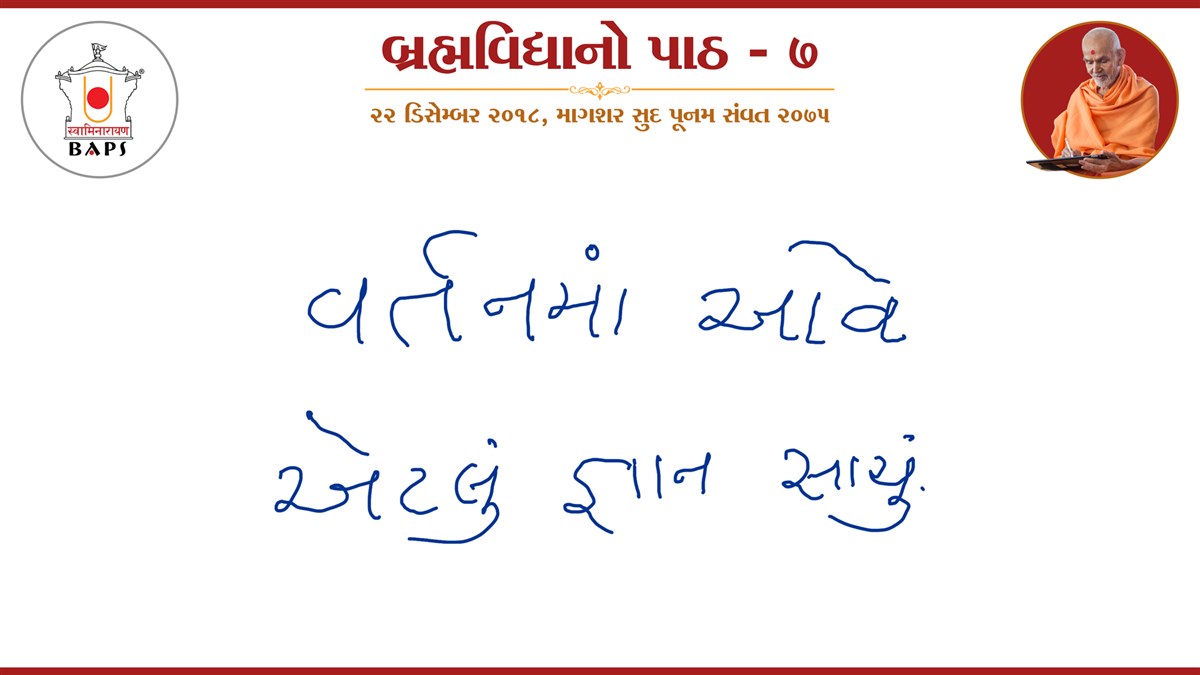 બ્રહ્મવિદ્યાનો પાઠ - ૭
૨૨ ડિસેમ્બર ૨૦૧૮, માગશર સુદ પૂનમ સંવત ૨૦૭૫
स्वामिनारायण
®
BAPS
વર્તનમાં આવે
એટલું જ્ઞાન સાચું.